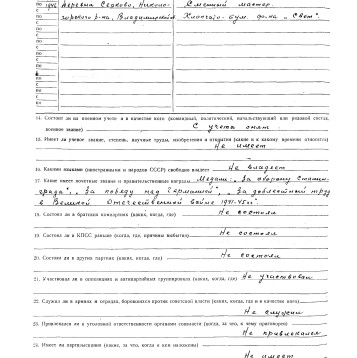 по 1946 Деревня Седково, Николо- Сменный мастер.
с горского р-на, Владимирской Клопчато-бум. ф-ка „Свет".
по
с
по
с
по
с
по
с
14. Состоял ли на военном учете и в качестве кого (командный, политический, начальствующий или рядовой состав,
военное звание) С учета снят
15. Имеет ли ученое звание, степень, научные труды, изобретения и открытия (какие и к какому времени относятся)
Не имеет
16. Какими языками (иностранными и народов СССР) свободно владеет Не владеет
17. Какие имеет почетные звания и правительственные награды Медаль- „За оборону Сталин-
града", „За победу над Германией", „За доблестный труд
в Великой Отечественной войне 1941-45гг."
18. Состоял ли в братских компартиях (каких, когда, где) Не состоял
19. Состоял ли в КПСС раньше (когда, где, причины выбытия) Не состоял
20. Состоял ли в других партиях (каких, когда, где) Не состоял
21. Участвовал ли в оппозициях и антипартийных группировках (каких, когда, где) Не участвовал
22. Служил ли в армиях и отрядах, боровшихся против советской власти (каких, когда, где и в качестве кого)
Не служил
23. Привлекался ли к уголовной ответственности органами советской (когда, за что, к чему приговорен)
Не привлекался
24. Имеет ли партвзыскания (какие, за что, когда и кем наложены)
Не имеет